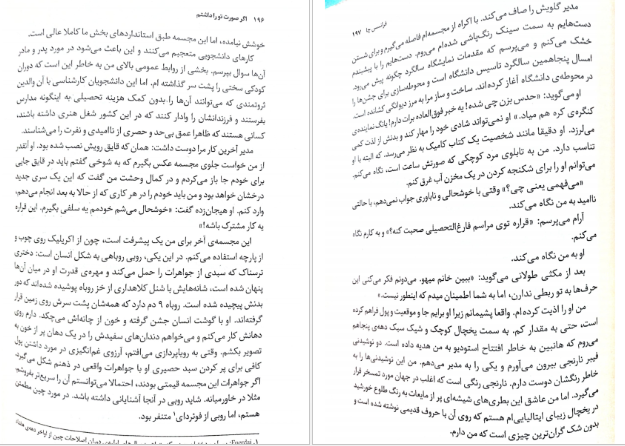 ۱۹۶ اگر صورت تو را داشتم
خوشش نیامده، اما این مجسمه طبق استانداردهای بخش ما کاملا عالی است.
کارهای دانشجویی متعجبم می‌کنند و این باعث می‌شود در مورد پدر و مادر
آن‌ها سوال بپرسم. بخشی از روابط عمومی بالای من به خاطر این است که دوران
کودکی سختی را پشت سر گذاشته ام. اما این دانشجویان کارشناسی با آن والدین
ثروتمندی که می‌توانند آن‌ها را بدون کمک هزینه تحصیلی به اینگونه مدارس
بفرستند و فرزندانشان را وادار کنند که در این کشور شغل هنری داشته باشند،
کسانی هستند که ظاهرا عمق بی‌حد و حصری از ناامیدی و نفرت را می‌شناسند.
مدیر آخرین کار مرا دوست داشت: همان که قایق رویش نصب شده بود. او آنقدر
از من خواست جلوی مجسمه عکس بگیرم که به شوخی گفتم باید در قایق جایی
برای خودم جا باز می‌کردم و در کمال وحشت من گفت که این یک سری جدید
درخشان خواهد بود و من باید خودم را در هر کاری که از حالا به بعد انجام می‌دهم،
وارد کنم. او هیجان‌زده گفت: «خوشحال می‌شم خودمم یه سلفی بگیرم. این قراره
یه کار مشترک باشه!»
این مجسمه‌ی آخر برای من یک پیشرفت است، چون از اکریلیک روی چوب و
از پارچه استفاده می‌کنم. در این یکی، روبی روباهی به شکل انسان است: دختری
ترسناک که سبدی از جواهرات را حمل می‌کند و مهره‌ی قدرت او در میان آن‌ها
پنهان شده است، شانه‌هایش با شنل کلاهداری از خز روباه پوشیده شده‌اند که دور
بدنش پیچیده شده است. روباه ۹ دم دارد که همه‌شان پشت سرش روی زمین قرار
گرفته‌اند. او با گوشت انسان جشن گرفته و خون از چانه‌اش می‌چکد. دارم روی
دهانش کار می‌کنم و می‌خواهم دندان‌های سفیدش را در یک دهان پر از خون به
تصویر بکشم. وقتی به رویاپردازی می‌افتم، آرزوی غم‌انگیزی در مورد داشتن پول
کافی برای پر کردن سبد حصیری او با جواهرات واقعی در ذهنم شکل می‌گیرد.
اگر جواهرات این مجسمه قیمتی بودند، احتمالا می‌توانستم آن را سریع‌تر بفروشم،
مثلا در خاورمیانه. شاید روبی در آنجا آشنایانی داشته باشد. در مورد چین مطمئن
هستم، اما روبی از فوتردای۱ متنفر بود.
فرانسس چا ۱۹۷
مدیر گلویش را صاف می‌کند. با اکراه از مجسمه‌ام فاصله می‌گیرم و برای شستن
دست‌هایم به سمت سینک رنگ‌پاشی شده‌ام می‌روم. دست‌هایم را با پیشبندم
خشک می‌کنم و می‌پرسم که مقدمات نمایشگاه سالگرد چگونه پیش می‌رود.
امسال پنجاهمین سالگرد تاسیس دانشگاه است و محوطه‌سازی برای جشن‌ها را
در محوطه‌ی دانشگاه آغاز کرده‌اند. ساخت و ساز مرا به مرز دیوانگی کشانده است.
او می‌گوید: «حدس بزن چی شده! یه خبر فوق‌العاده برات دارم! یانگ نماینده‌ی
کنگره‌ی کره هم میاد.» او نمی‌تواند شادی خود را مهار کند و بدنش از لذت کمی
می‌لرزد. او دقیقا مانند شخصیت یک کتاب کامیک به نظر می‌رسد، که البته با او
تناسب دارد. من به تابلوی مرد کوچکی که صورتش ساعت است، نگاه می‌کنم.
می‌توانم او را برای شکنجه کردن در یک مخزن آب غرق کنم.
«می‌فهمی یعنی چی؟» وقتی با خوشحالی و ناباوری جواب نمی‌دهم، با حالتی
ناامید به من نگاه می‌کند.
آرام می‌پرسم: «قراره توی مراسم فارغ‌التحصیلی صحبت کنه؟» و به کارم نگاه
می‌کنم.
او به من نگاه می‌کند.
بعد از مکثی طولانی می‌گوید: «ببین خانم میهو. می‌دونم فکر می‌کنی این
حرف‌ها به تو ربطی ندارن، اما به شما اطمینان میدم که اینطور نیست.»
من او را اذیت کرده‌ام. واقعا پشیمانم زیرا او برایم جا و موقعیت و پول فراهم کرده
است، حتی به مقدار کم. به سمت یخچال کوچک و شیک سبک دهه‌ی پنجاهم
می‌روم که هانبین به خاطر افتتاح استودیو به من هدیه داده است. دو نوشیدنی
فیبر نارنجی بیرون می‌آورم و یکی را به مدیر می‌دهم. من این نوشیدنی‌ها را به
خاطر رنگشان دوست دارم. نارنجی رنگی است که اغلب در جهان مورد تمسخر قرار
می‌گیرد. اما من عاشق این بطری‌های شیشه‌ای پر از مایعات به رنگ طلوع خورشید
در یخچال زیبای ایتالیایی‌ام هستم که روی آن با حروف قدیمی نوشته شده است و
بدون شک گران‌ترین چیزی است که من دارم.